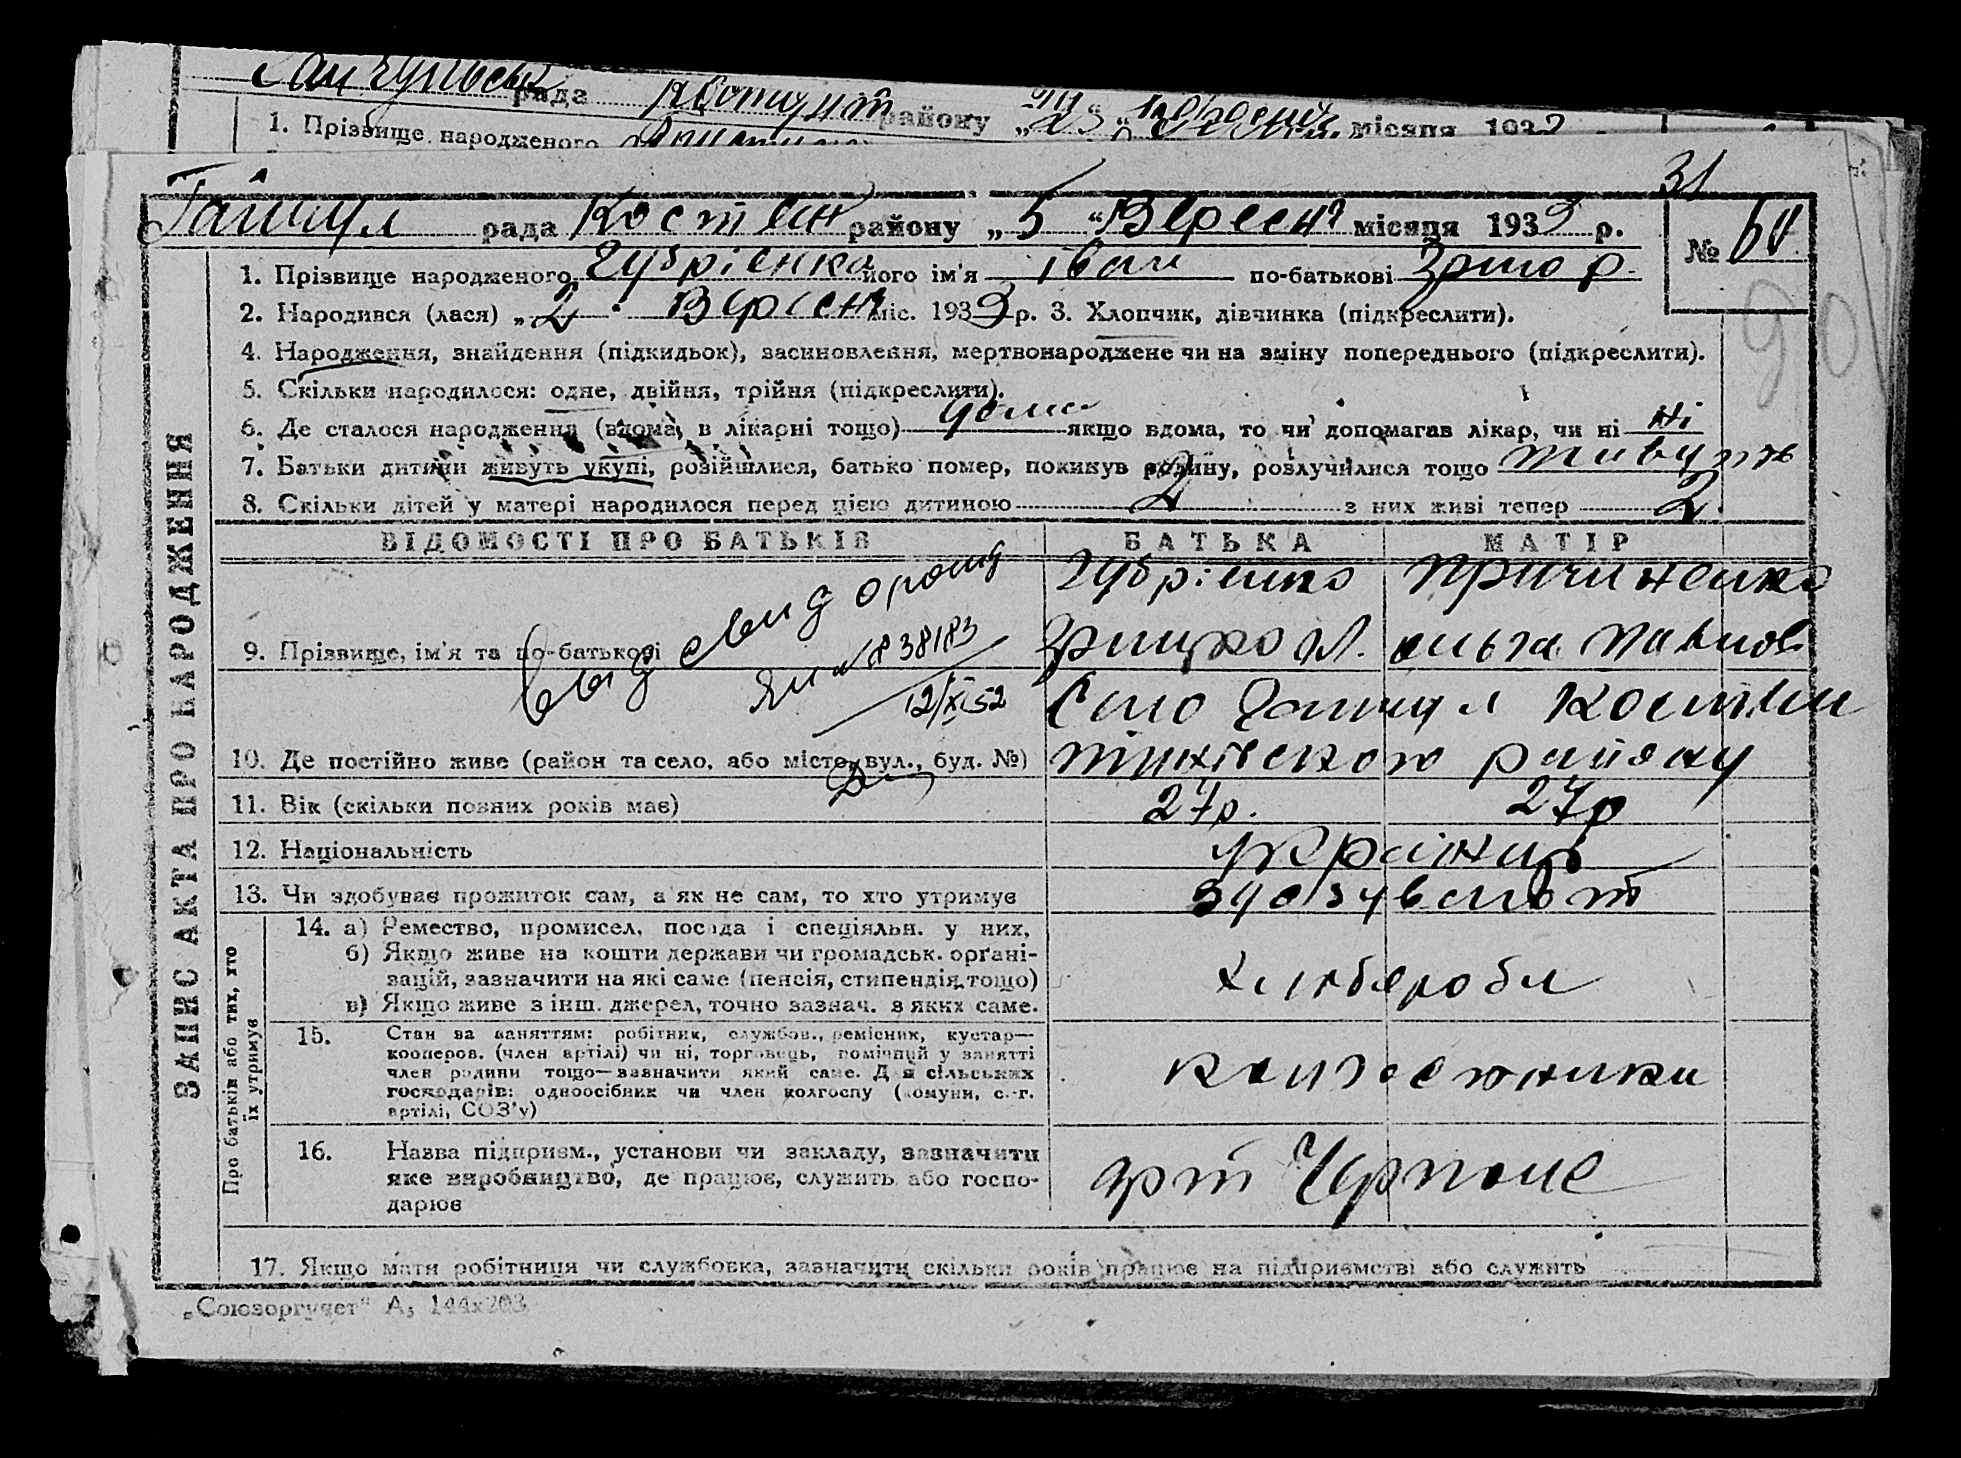 рада району „23“ місяця 193
1. Прізвище народженого
31
Гайшул рада Костян району „5“ Вересня місяця 1933 р.
№ 60
90
1. Прізвище народженого Губрієнка його ім'я Іван по-батькові Григор.
2. Народився (лася) „2“ Вересня міс. 1933 р. 3. Хлопчик, дівчинка (підкреслити).
4. Народження, знайдення (підкидьок), засиновлення, мертвонароджене чи на зміну попереднього (підкреслити).
5. Скільки народилося: одне, двійня, трійня (підкреслити).
6. Де сталося народження (вдома, в лікарні тощо) дома якщо вдома, то чи допомагав лікар, чи ні ні
7. Батьки дитини живуть укупі, розійшлися, батько помер, покинув родину, розлучилися тощо живуть
8. Скільки дітей у матері народилося перед цією дитиною 2 з них живі тепер 2
ЗАПИС АКТА ПРО НАРОДЖЕННЯ
ВІДОМОСТІ ПРО БАТЬКІВ БАТЬКА МАТІР
Губрієнко
9. Прізвище, ім'я та по-батькові Грицко Ольга Павлов
выд свид
№ 838183
12/XI 52
Село
10. Де постійно живе (район та село, або місто, вул., буд. №) району
11. Вік (скільки повних років має) 27р. 27р
12. Національність українці
13. Чи здобуває прожиток сам, а як не сам, то хто утримує
Про батьків або тих, хто їх утримує
14. а) Ремество, промисел, посада і спеціяльн. у них,
б) Якщо живе на кошти держави чи громадськ. орґані-
зацій, зазначити на які саме (пенсія, стипендія тощо)
в) Якщо живе з інш. джерел, точно зазнач. з яких саме.
хлібороби
15. Стан за заняттям: робітник, службов., ремісник, кустар—
кооперов. (член артілі) чи ні, торговець, помічний у занятті
член родини тощо—зазначити який саме. Для сільських
господарів: одноосібник чи член колгоспу (комуни, с.-г.
артілі, СОЗ'у)
колгоспники
16. Назва підприєм., установи чи закладу, зазначити
яке виробництво, де працює, служить або госпо-
дарює
арт
17. Якщо мати робітниця чи службовка, зазначити скільки років працює на підприємстві або служить
„Союзоргучет“ А₅ 144х203